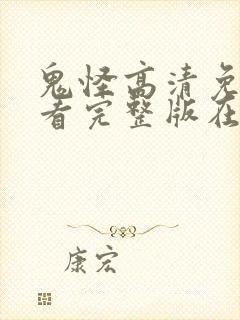 鬼怪高清免
看完整版在
康宏